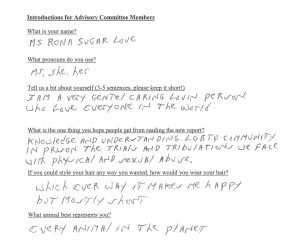 Introductions for Advisory Committee Members
What is your name?
MS RONA SUGAR LOVE
What pronouns do you use?
MS, she, her
Tell us a bit about yourself (3-5 sentences, please keep it short!)
I AM A VERY GENTEL CARING LOVIN PERSON
who LOVE EVERYONE IN THE WORLD
What is the one thing you hope people get from reading the new report?
KNOWLEDGE AND UNDERSTANDING. LGBTQ COMMUNITY
IN PRISON THE TRIALS AND TRIBULATIONS WE FACE
WITH PHYSICAL AND SEXUAL ABUSE.
If you could style your hair any way you wanted, how would you wear your hair?
WHICH EVER WAY IT MAKES ME HAPPY
BUT MOSTLY SHORT
What animal best represents you?
EVERY ANIMAL IN THE PLANET